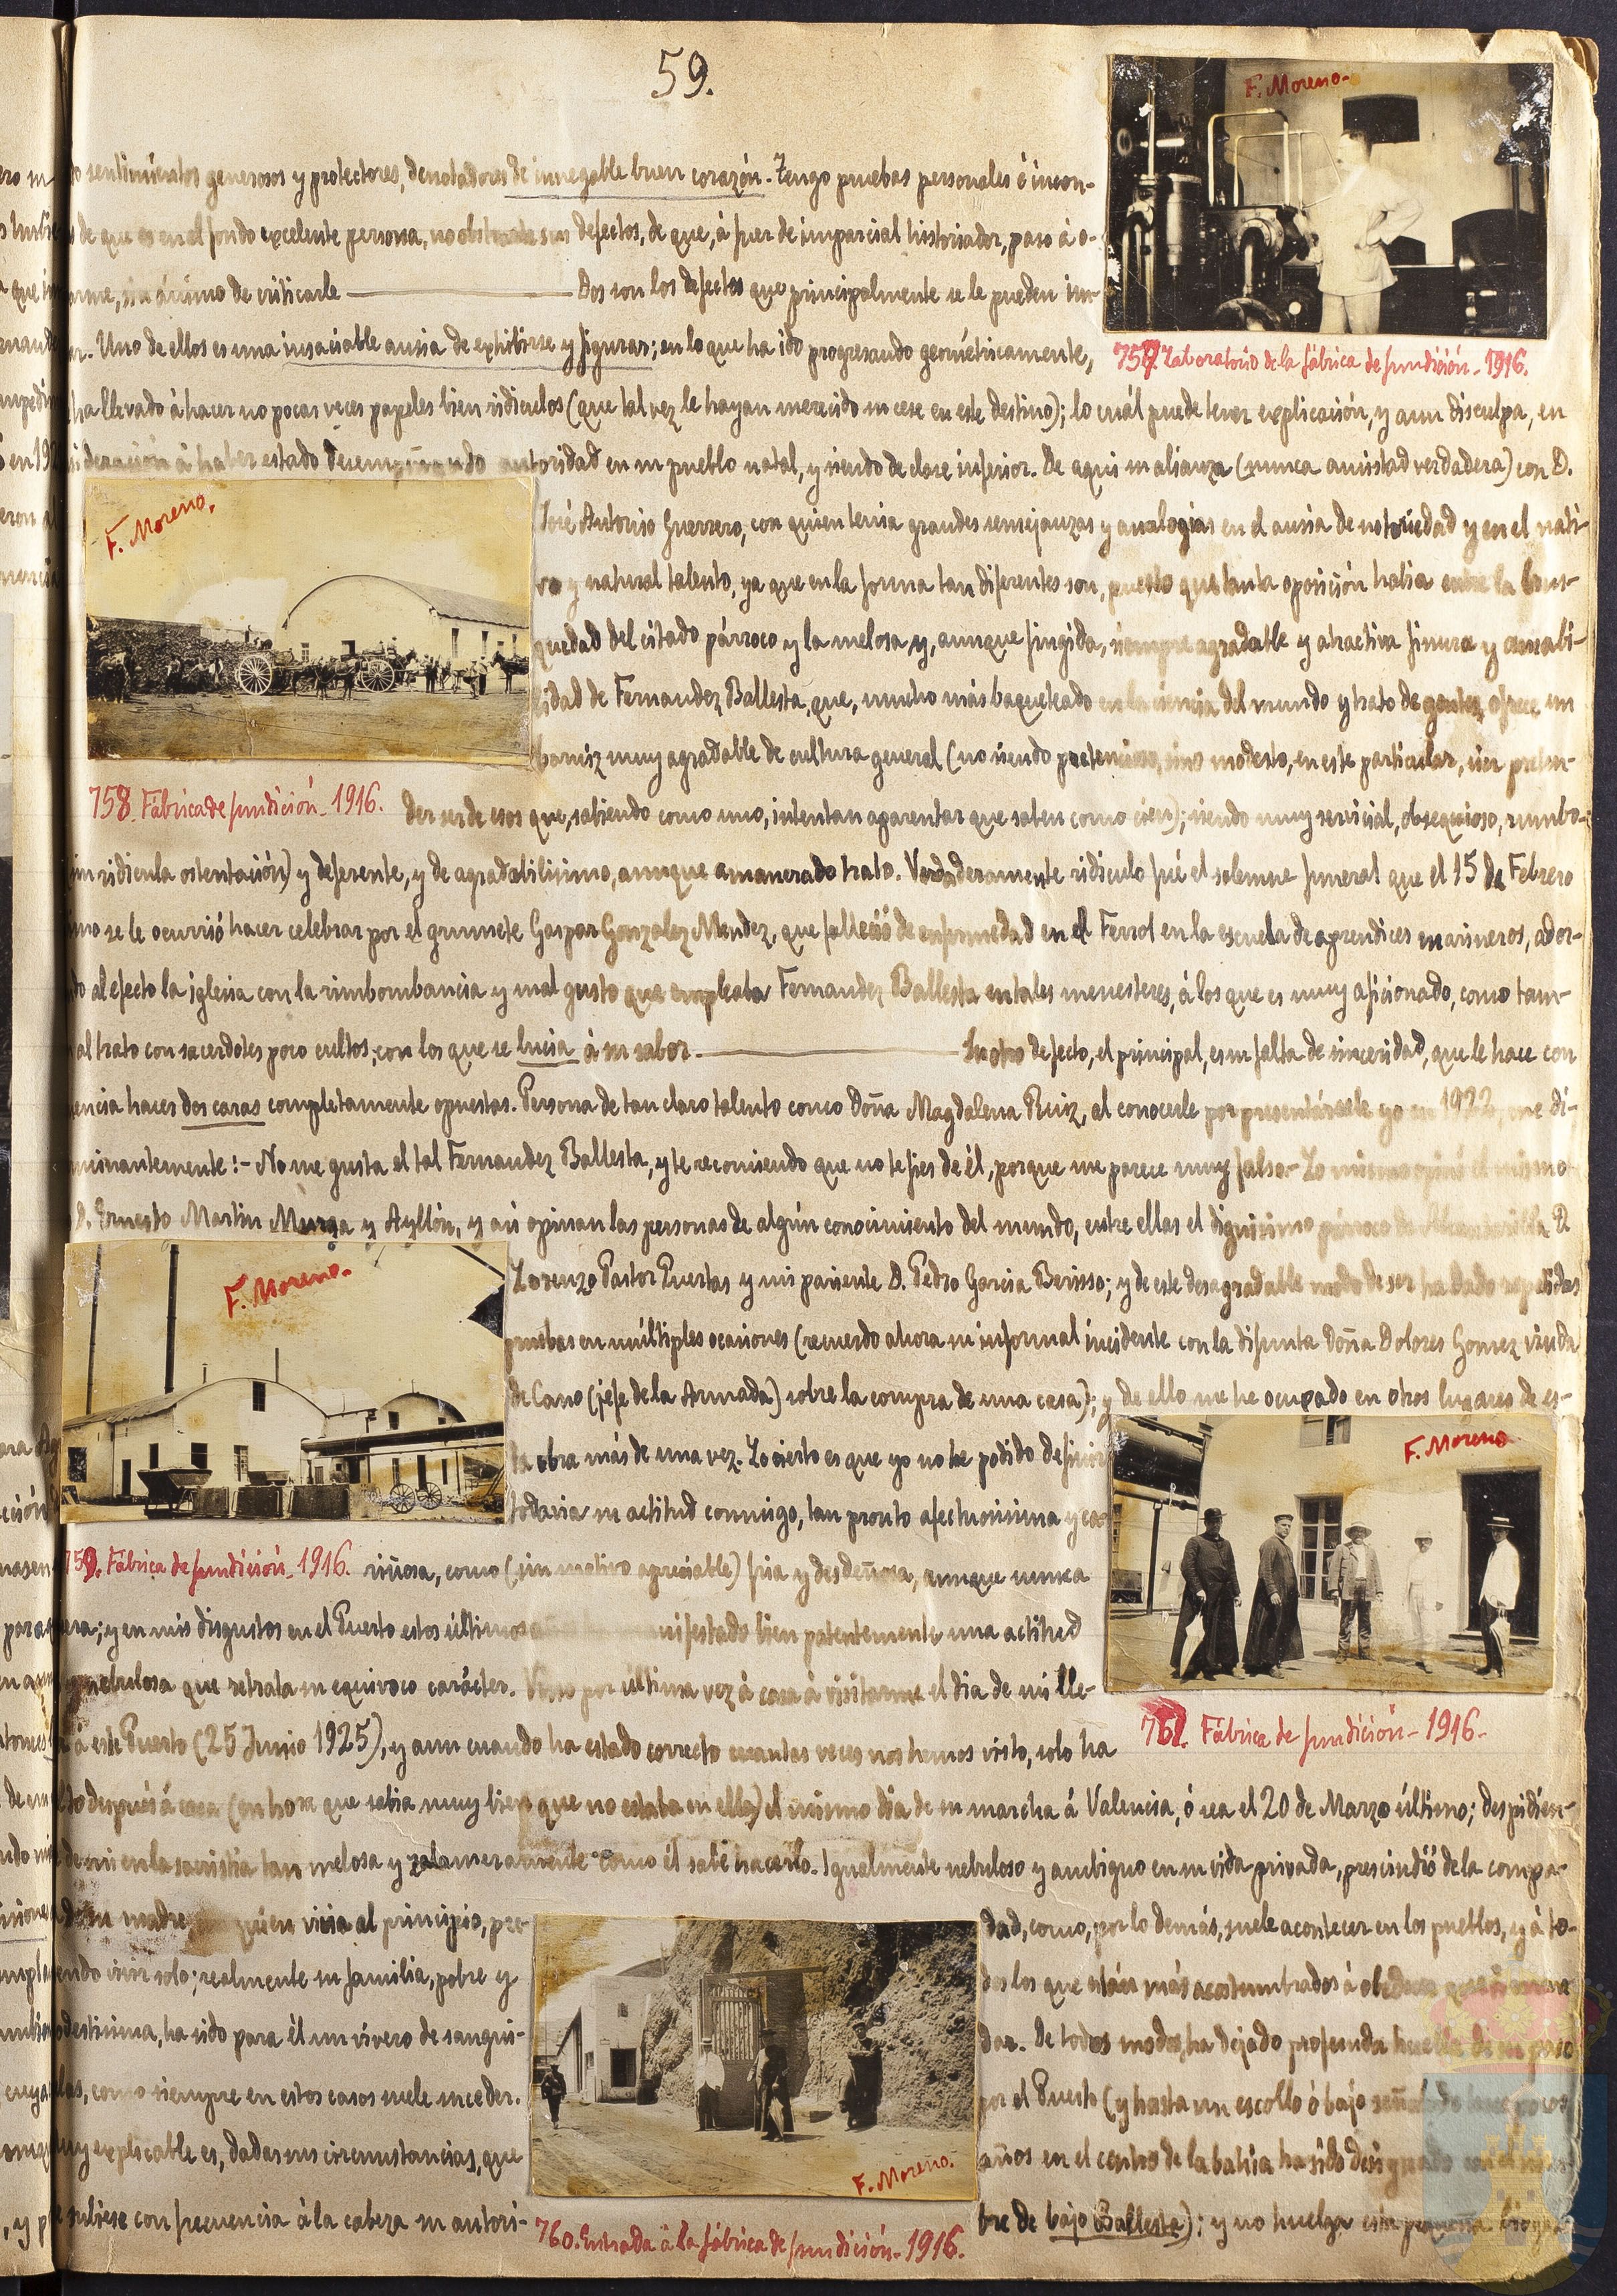 59.
F. Moreno.
sentimientos generosos y protectores, denotadores de innegable buen corazón. Tengo pruebas personales é incon-
de que es en el fondo excelente persona, no obstante sus defectos, de que, á fuer de imparcial historiador, paso á o-
sin ánimo de criticarle ——— Dos son los defectos que principalmente se le pueden im-
Uno de ellos es una insaciable ansia de exhibirse y figurar; en lo que ha ido progresando geométricamente,
757. Laboratorio de la fábrica de fundición_ 1916.
ha llevado á hacer no pocas veces papeles bien ridiculos (que tal vez le hayan merecido su cese en este destino); lo cuál puede tener explicación, y aun disculpa, en
á haber estado desempeñando autoridad en su pueblo natal, y siendo de clase inferior. De aqui su alianza (nunca amistad verdadera) con D.
F. Moreno.
José Antonio Guerrero, con quien tenia grandes semejanzas y analogias en el ansia de notoriedad y en el nati-
vo y natural talento, ya que en la forma tan diferentes son, puesto que tanta oposición habia entre la brus-
quedad del citado párroco y la melosa y, aunque fingida, siempre agradable y atractiva finura y amabi-
lidad de Fernandez Ballesta, que, mucho más baqueteado en la ciencia del mundo y trato de gentes, ofrece un
barniz muy agradable de cultura general (no siendo pretencioso, sino modesto, en este particular, sin preten-
758. Fábrica de fundición_ 1916.
der ser de esos que, sabiendo como uno, intentan aparentar que saben como cien); siendo muy servicial, obsequioso, rumbo-
sin ridicula ostentación) y deferente, y de agradabilisimo, aunque amanerado trato. Verdaderamente ridiculo fué el solemne funeral que el 15 de Febrero
se le ocurrió hacer celebrar por el grumete Gaspar Gonzalez Mendez, que falleció de enfermedad en el Ferrol en la escuela de aprendices marineros, ador-
al efecto la iglesia con la rimbombancia y mal gusto que empleaba Fernandez Ballesta en tales menesteres, á los que es muy aficionado, como tam-
al trato con sacerdotes poco cultos, con los que se lucia á su sabor. ——— Su otro defecto, el principal, es su falta de sinceridad, que le hace con
hacer dos caras completamente opuestas. Persona de tan claro talento como Doña Magdalena Ruiz, al conocerle por presentársele yo en 1922, me di-
:- No me gusta el tal Fernandez Ballesta, y te recomiendo que no te fies de él, porque me parece muy falso- Lo mismo opinó el mismo
D. Ernesto Martin Murga y Ayllón, y asi opinan las personas de algún conocimiento del mundo, entre ellas el dignisimo párroco de Alcantarilla D
F. Moreno.
Lorenzo Pastor Puertas y mi pariente D. Pedro Garcia Berisso; y de este desagradable modo de ser ha dado repetidas
pruebas en múltiples ocasiones (recuerdo ahora su informal incidente con la difunta Doña Dolores Gomez viuda
de Cano (jefe de la Armada) sobre la compra de una casa); y de ello me he ocupado en otros lugares de es-
ta obra más de una vez. Lo cierto es que yo no he podido definir
todavia su actitud conmigo, tan pronto afectuosisima y ca-
F. Moreno
759. Fábrica de fundición_ 1916.
riñosa, como (sin motivo apreciable) fria y desdeñosa, aunque nunca
y en mis disgustos en el Puerto estos últimos manifestado bien patentemente una actitud
nebulosa que retrata su equivoco carácter. Vino por última vez á casa á visitarme el dia de mi lle-
á este Puerto (25 Junio 1925), y aun cuando ha estado correcto cuantas veces nos hemos visto, solo ha
761. Fábrica de fundición_ 1916.
después á casa (en hora que sabia muy bien que no estaba en ella) el mismo dia de su marcha á Valencia, ó sea el 20 de Marzo último; despidien-
de mi en la sacristia tan melosa y zalameramente como él sabe hacerlo. Igualmente nebuloso y ambiguo en su vida privada, prescindió de la compa-
su madre quien vivia al principio, pre-
vivir solo; realmente su familia, pobre y
modestisima, ha sido para él un vivero de sangui-
como siempre en estos casos suele suceder.
muy explicable es, dadas sus circunstancias, que
subiese con frecuencia á la cabeza su autori-
F. Moreno.
760. Entrada á la fábrica de fundición_ 1916.
dad, como, por lo demás, suele acontecer en los pueblos, y á to-
dos los que están más acostumbrados á obedecer que á man-
dar. De todos modos, ha dejado profunda huella de su paso
por el Puerto (y hasta un escollo ó bajo señalado hace pocos
años en el centro de la bahia ha sido designado con el nom-
bre de bajo Ballesta); y no huelga esta pequeña